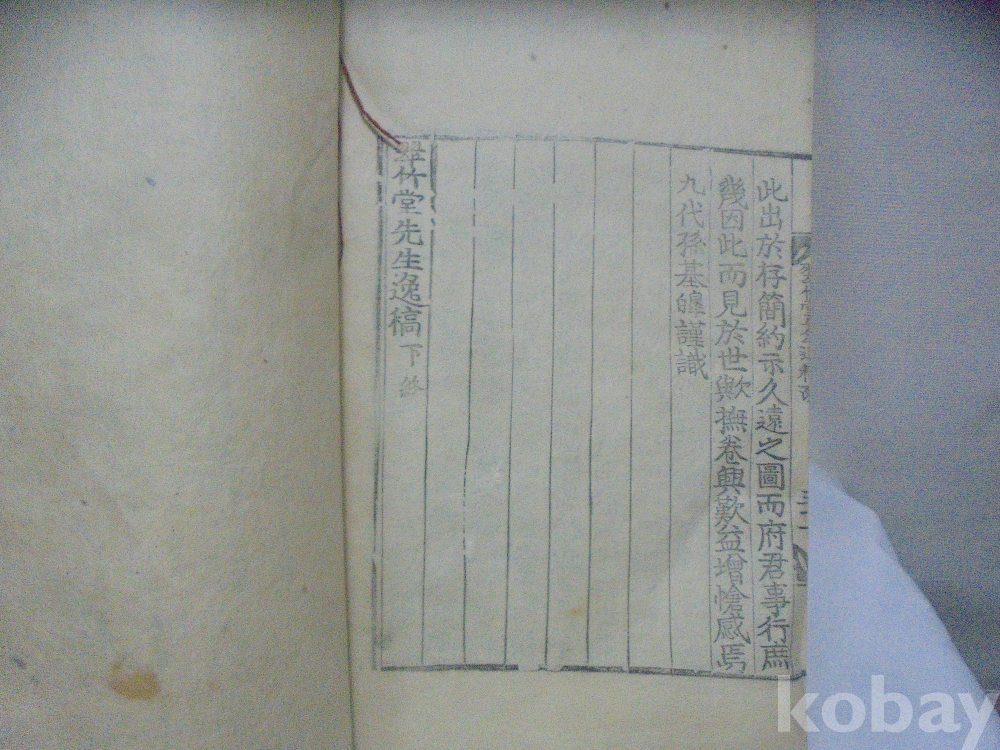 此出於存簡約示久遠之圖而府君事行庶
幾因此而見於世歟撫卷興歎益增愴感焉
九代孫基皥謹識
翠竹堂先生逸稿 下 終
kobay